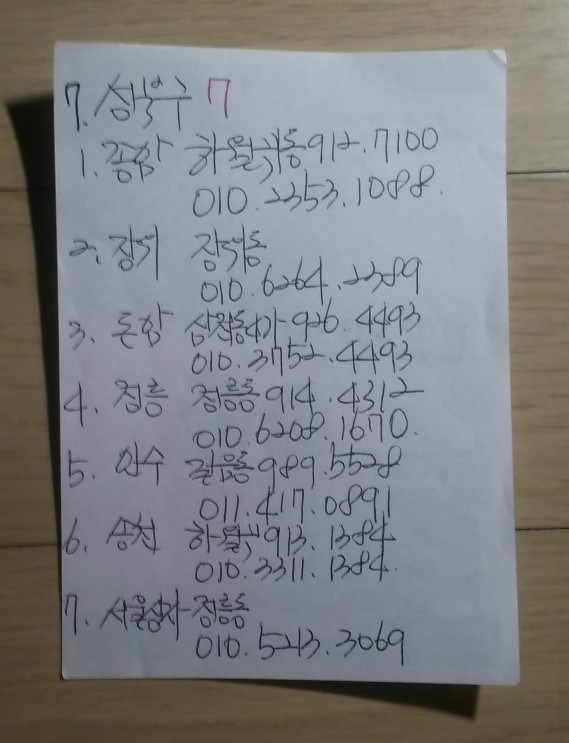 7. 성북구 7
1. 종합 하월곡동 912.7100
010.2353.1088.
2. 장위 장위동
010.6264.2389
3. 돈암 삼선동4가 926.4493
010.3752.4493
4. 정릉 정릉동 914.4312
010.6208.1670.
5. 길음동 989.5528
011.417.0891
6. 숭천 하월곡 913.1384
010.3311.1384.
7. 서울상가 정릉동
010.5213.3069